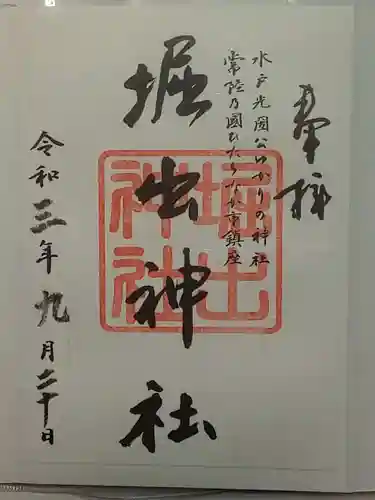 奉拝
水戸光圀公ゆかりの神社
常陸乃國ひたちなか市鎮座
堀出神社
堀出神社
令和三年九月二十日